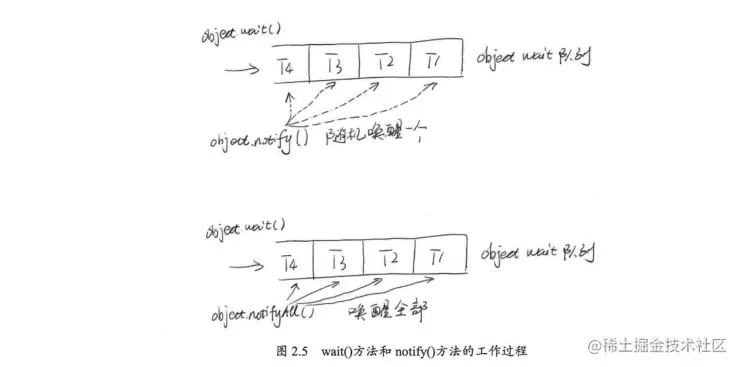 object.wait()
T4 T3 T2 T1 object wait 队列
object.notify() 随机唤醒一个
object.wait()
T4 T3 T2 T1 object wait 队列
object.notifyAll() 唤醒全部
图 2.5 wait()方法和 notify()方法的工作过程
@稀土掘金技术社区